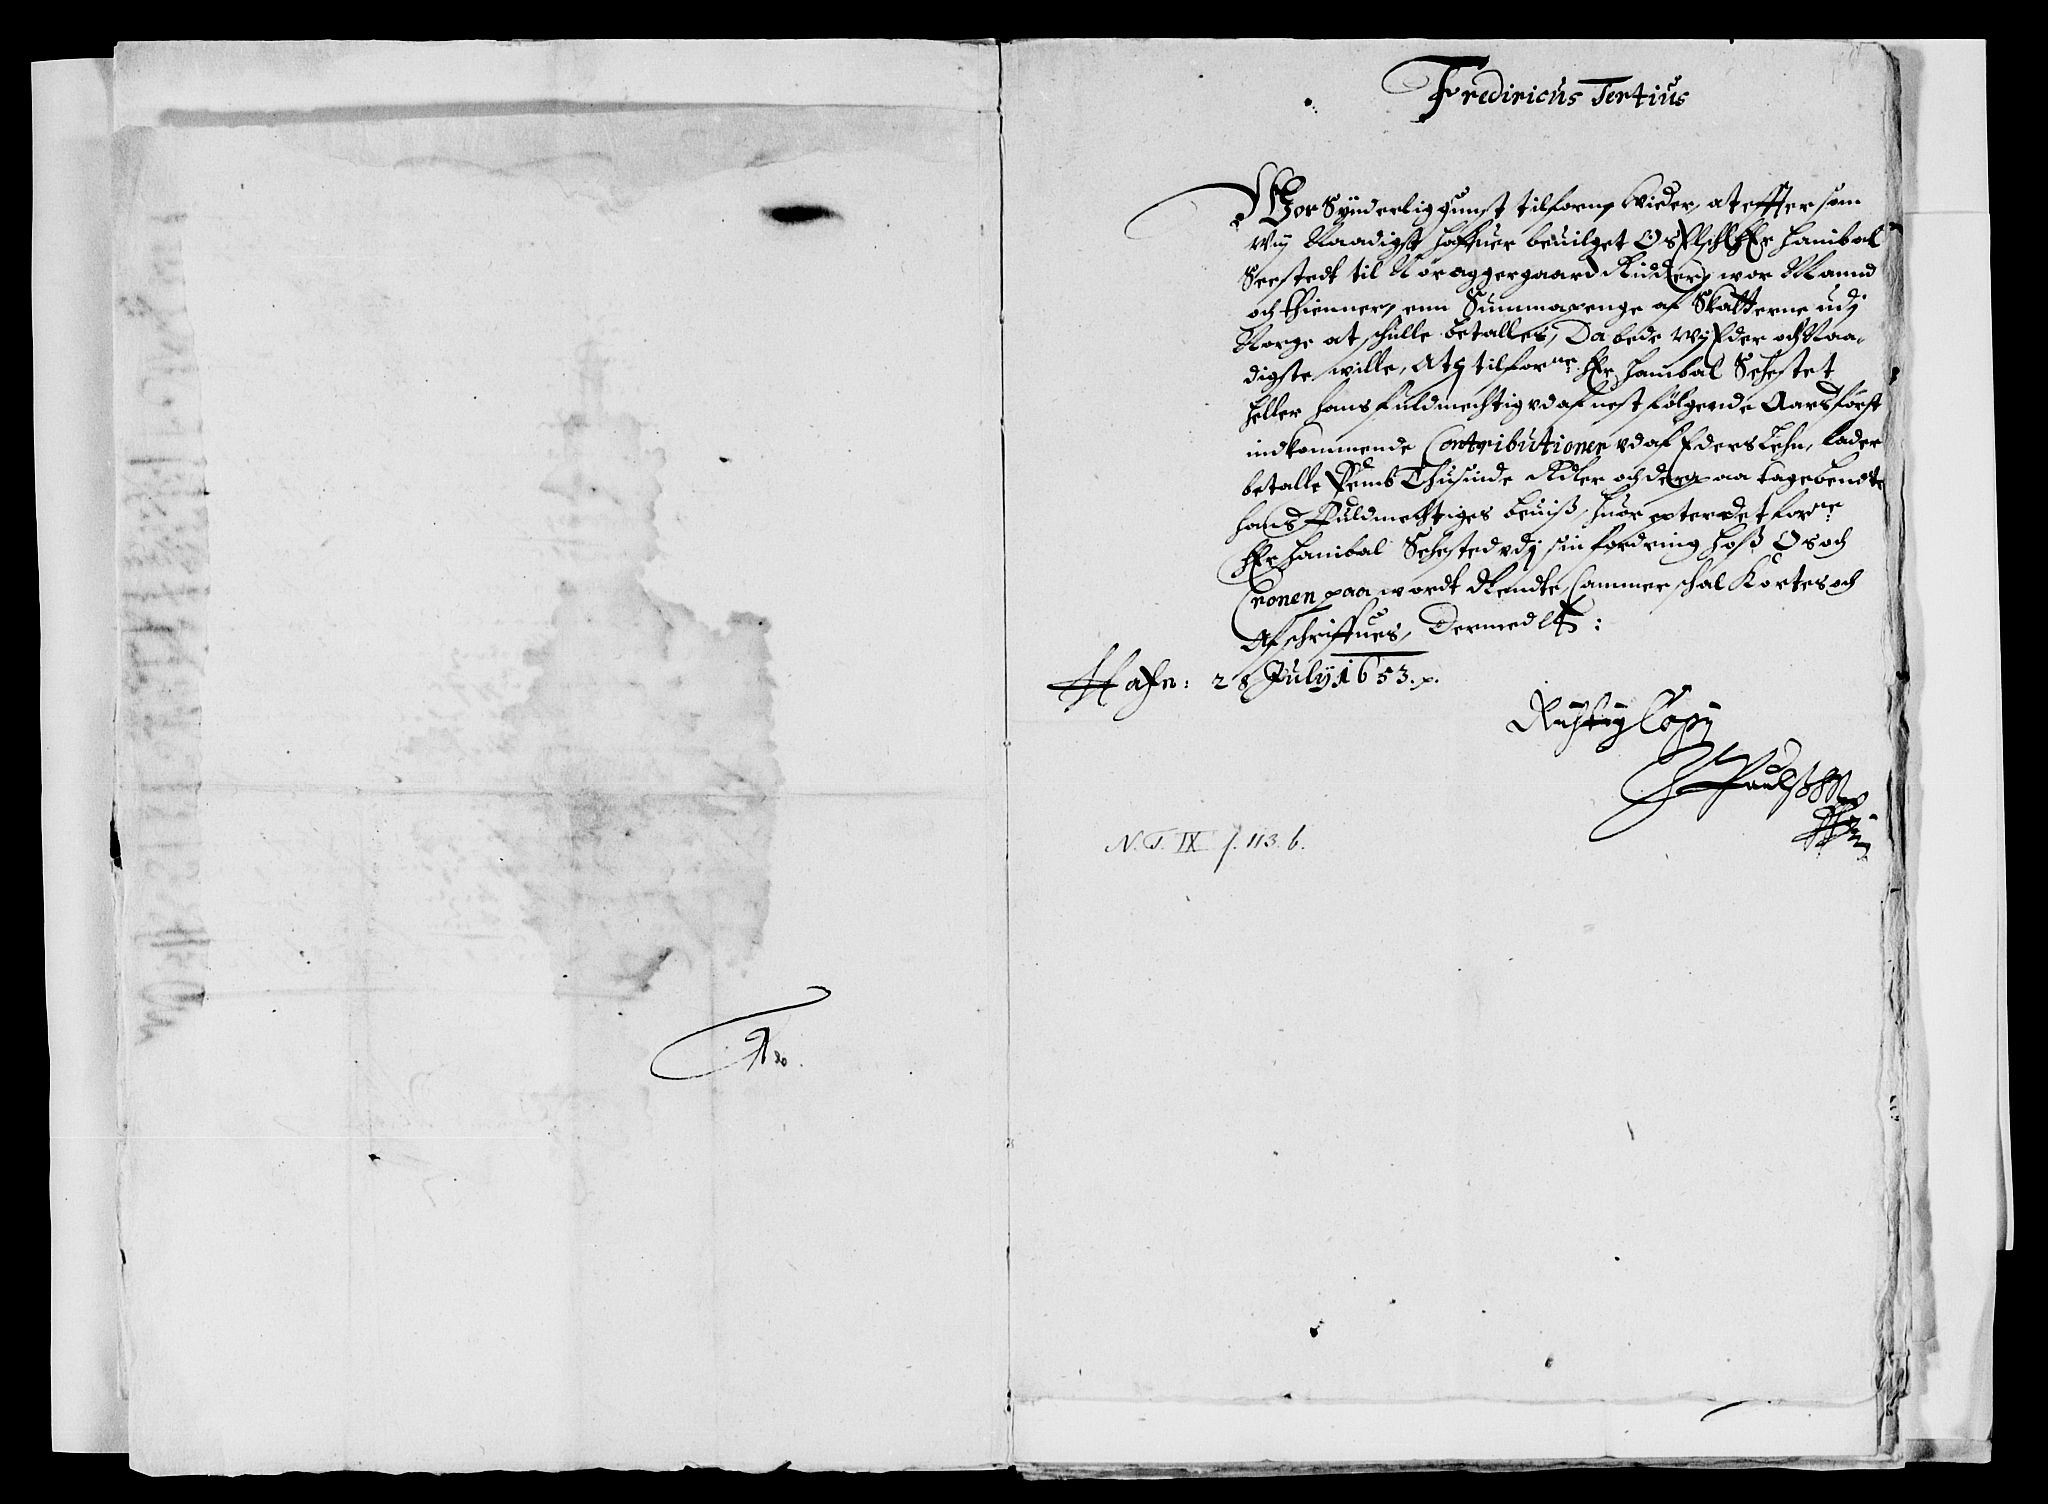 Fredericus Tertius
Wor Synderlig gunst tilforn, Wider, at effter som
Wij Naadigst hafuer beuilget Os Elschel. Her Hanibal
Seestedt til Nøraggergaard Ridder, wor Mannd
och Thienner, enn Summa penge af Skatterne udj
Norge at schulle betalles, Da bede Wij Eder och Naa-
digste wille, At I tilforne Her Hanibal Sehestet
heller hans fuldmechtig vdaf nest følgende Aars først
indkommende Contributioner vdaf Eders Lehn, lader
betalle Femb Thusinde Rdler och der paa tage bendte
hans Fuldmechtiges beuiß, huor epter det forne
Her Hanibal Sehested vdj sin fordring hoß Os och
Cronen paa wordt Rendte Cammer schal Kortes och
Afschriffues, Dermed etc:
Hafn: 28 July 1653.
Richtig Copy
N. T. IX f. 113. b.